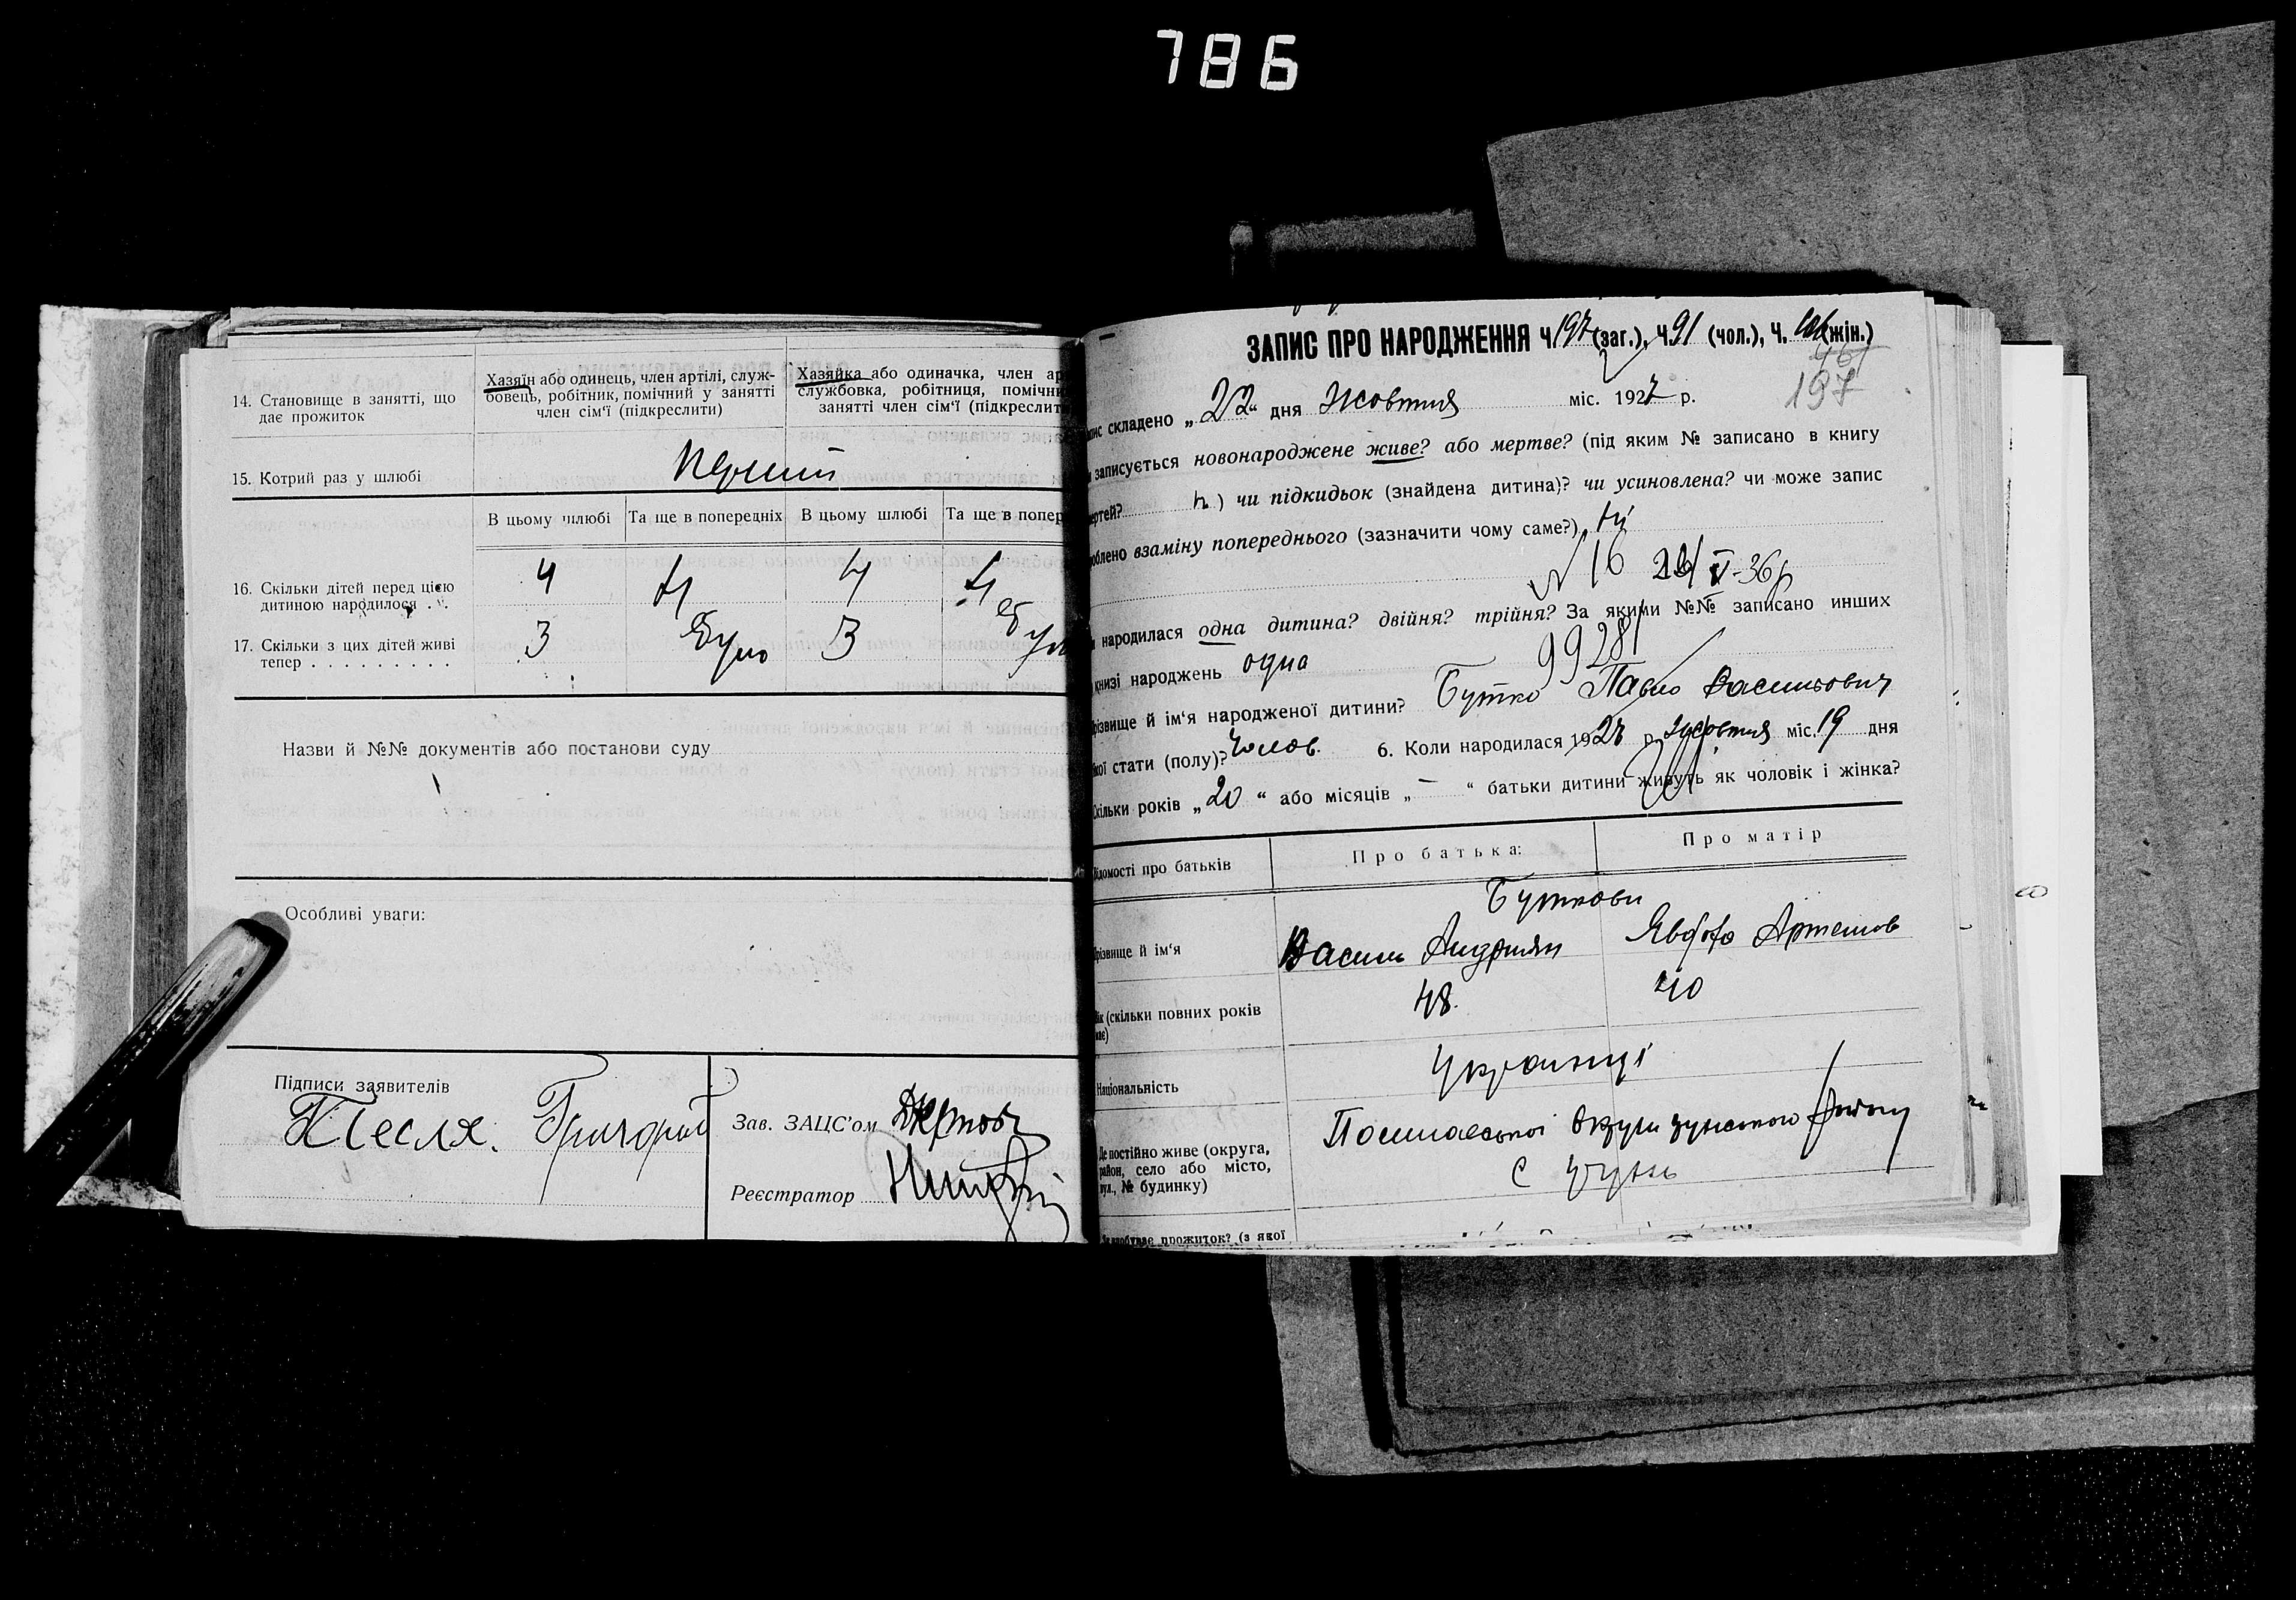 786
14. Становище в занятті, що
дає прожиток
Хазяїн або одинець, член артілі, служ-
бовець, робітник, помічний у занятті
член сім'ї (підкреслити)
Хазяйка або одиначка, член ар
службовка, робітниця, помічни
занятті член сім'ї (підкреслит
15. Котрий раз у шлюбі
перший
В цьому шлюбі Та ще в попередніх В цьому шлюбі Та ще в попер
16. Скільки дітей перед цією
дитиною народилося . .
4 4
17. Скільки з цих дітей живі
тепер . . . . . . . . .
3 було 3
Назви й №№ документів або постанови суду
Особливі уваги:
Підписи заявителів
Тесля. Григорий
Зав. ЗАЦС'ом
Реєстратор
ЗАПИС ПРО НАРОДЖЕННЯ Ч 197 (заг.), Ч. 91 (чол.), Ч. 106 (жін.)
197
пис складено „22“ дня Жовтня міс. 1927 р.
записується новонароджене живе? або мертве? (під яким № записано в книгу
ертей? ) чи підкидьок (знайдена дитина)? чи усиновлена? чи може запис
облено взаміну попереднього (зазначити чому саме?) ні
№ 16 V-36р
народилася одна дитина? двійня? трійня? За якими №№ записано инших
99281
книзі народжень одна
різвище й ім'я народженої дитини? Бутко Павло Васильович
кої стати (полу)? Чолов. 6. Коли народилася 1927 р Жовтня міс. 19 дня
Скільки років „20“ або місяців „—“ батьки дитини живуть як чоловік і жінка?
ідомості про батьків Про батька: Про матір
Буткови
різвище й ім'я Василь Андріян Явдоха Артемов
ік (скільки повних років
має)
48. 40
Національність Українці
Де постійно живе (округа,
район, село або місто,
вул., № будинку)
Полтавської округи району
с
прожиток? (з якої